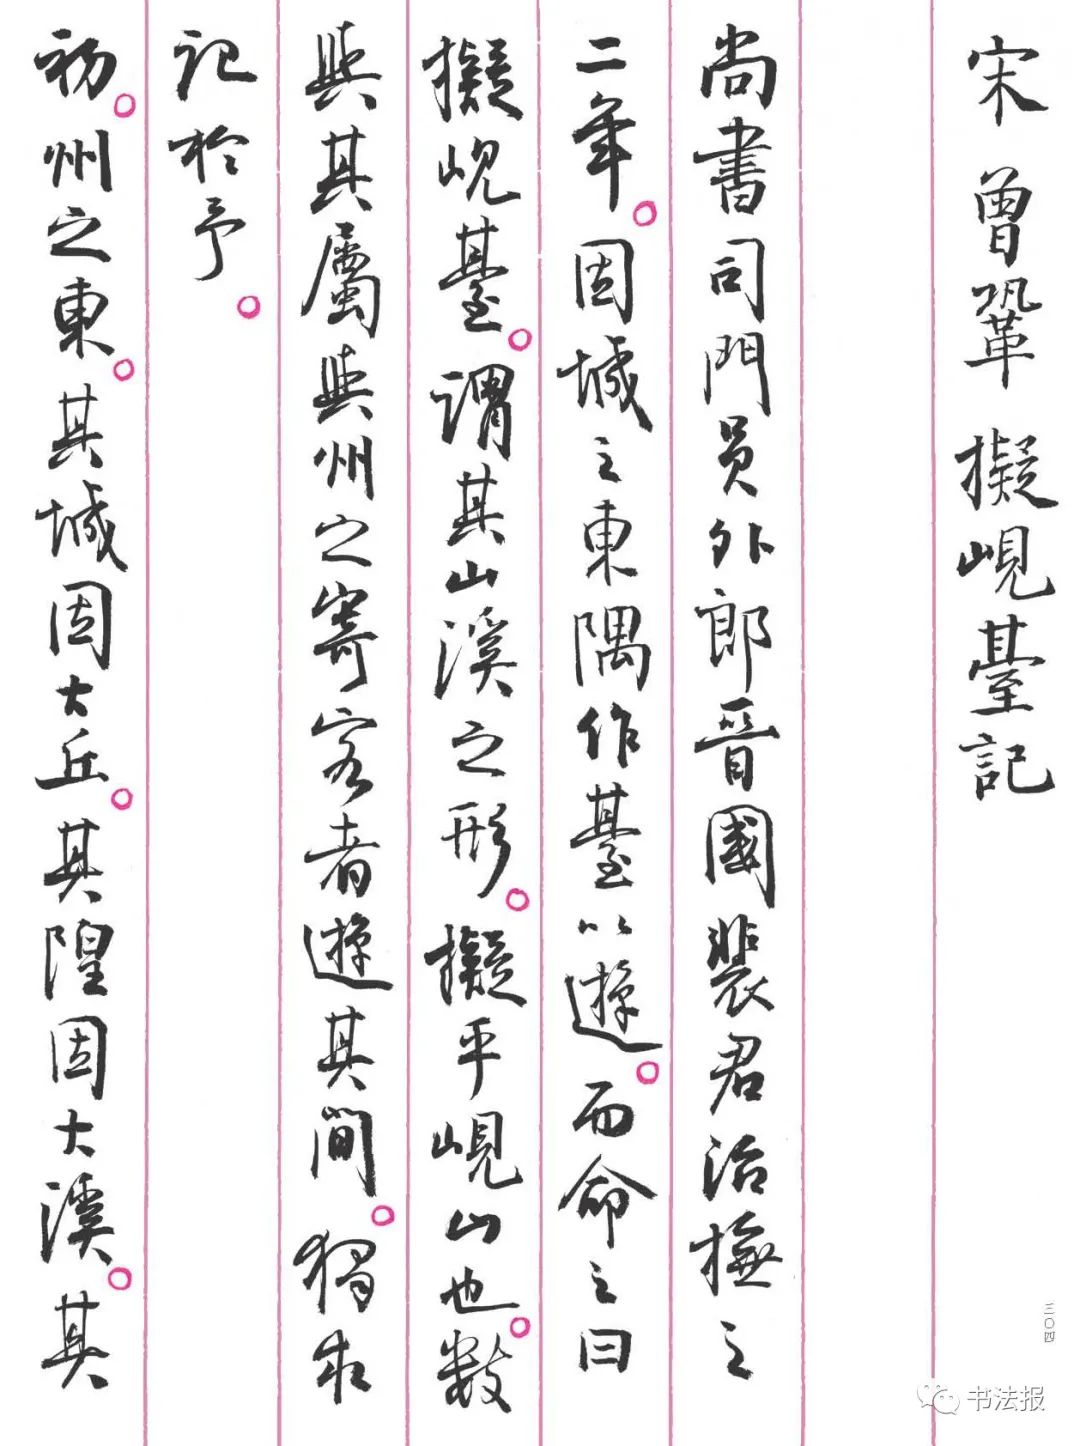 宋 曾鞏 擬峴臺記
尚書司門员外郎晋國裴君治撫之
二年。因城之東隅作臺以遊。而命之曰
擬峴臺。謂其山溪之形。擬乎峴山也。數
與其屬與州之寄客者遊其間。獨求
记於予。
初。州之東。其城因大丘。其隍因大溪。其
三〇四
书法报